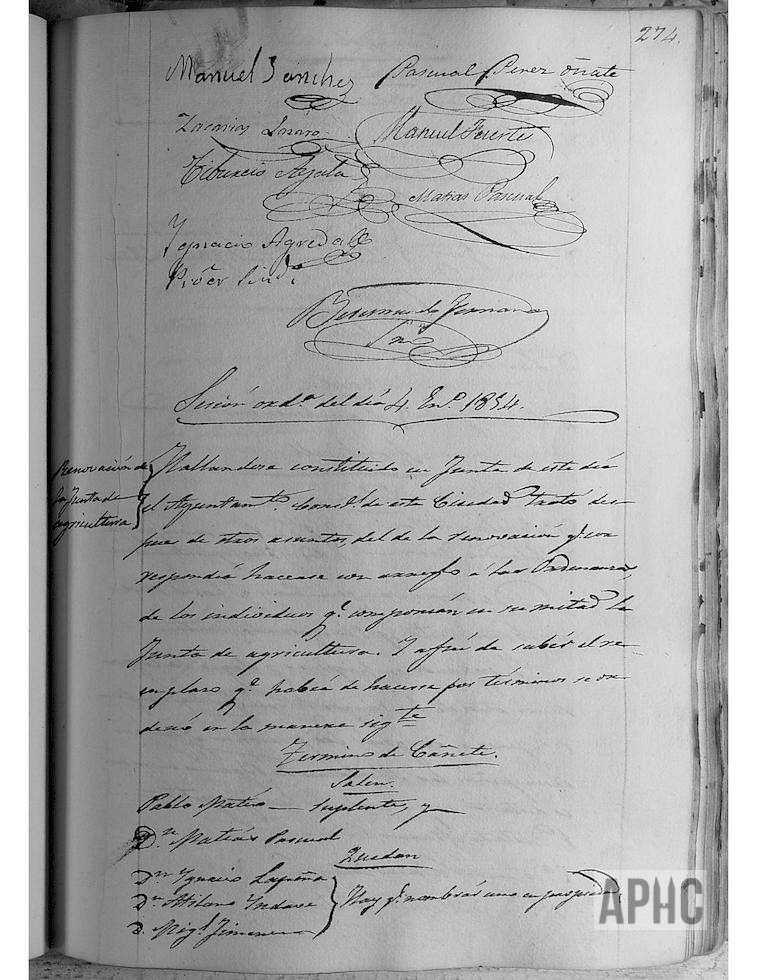 274.
Manuel Sanchez Pascual Perez Oñate
Zacarias Lazaro Manuel Fuerte
Tiburcio Ayala
Matias Pascual
Ygnacio Agreda
Pror Sindo
Bernardo
Srio
Sesión ordª del día 4. Enº 1854.
Renovación de
la Junta de
agricultura
Hallandose constituido en Junta de este dia
el Ayuntamtº Constl de esta Ciudad trató des-
pues de otros asuntos, del de la renovación qe cor
respondió hacerse con arreglo á las Ordenanzas,
de los individuos qe componian en su mitad la
Junta de agricultura. Y afin de saber el re-
emplazo qe habia de hacerse por términos se or
denó en la manera sigte
Termino de Cañete.
Salen.
Pablo Matéo — suplente, y
Dn Matias Pascual
Quedan
Dn Ygnacio Lapeña
Dn Atilano Yndave
D. Migl Jimenez
Hay qe nombrar uno en propiedd
APHC